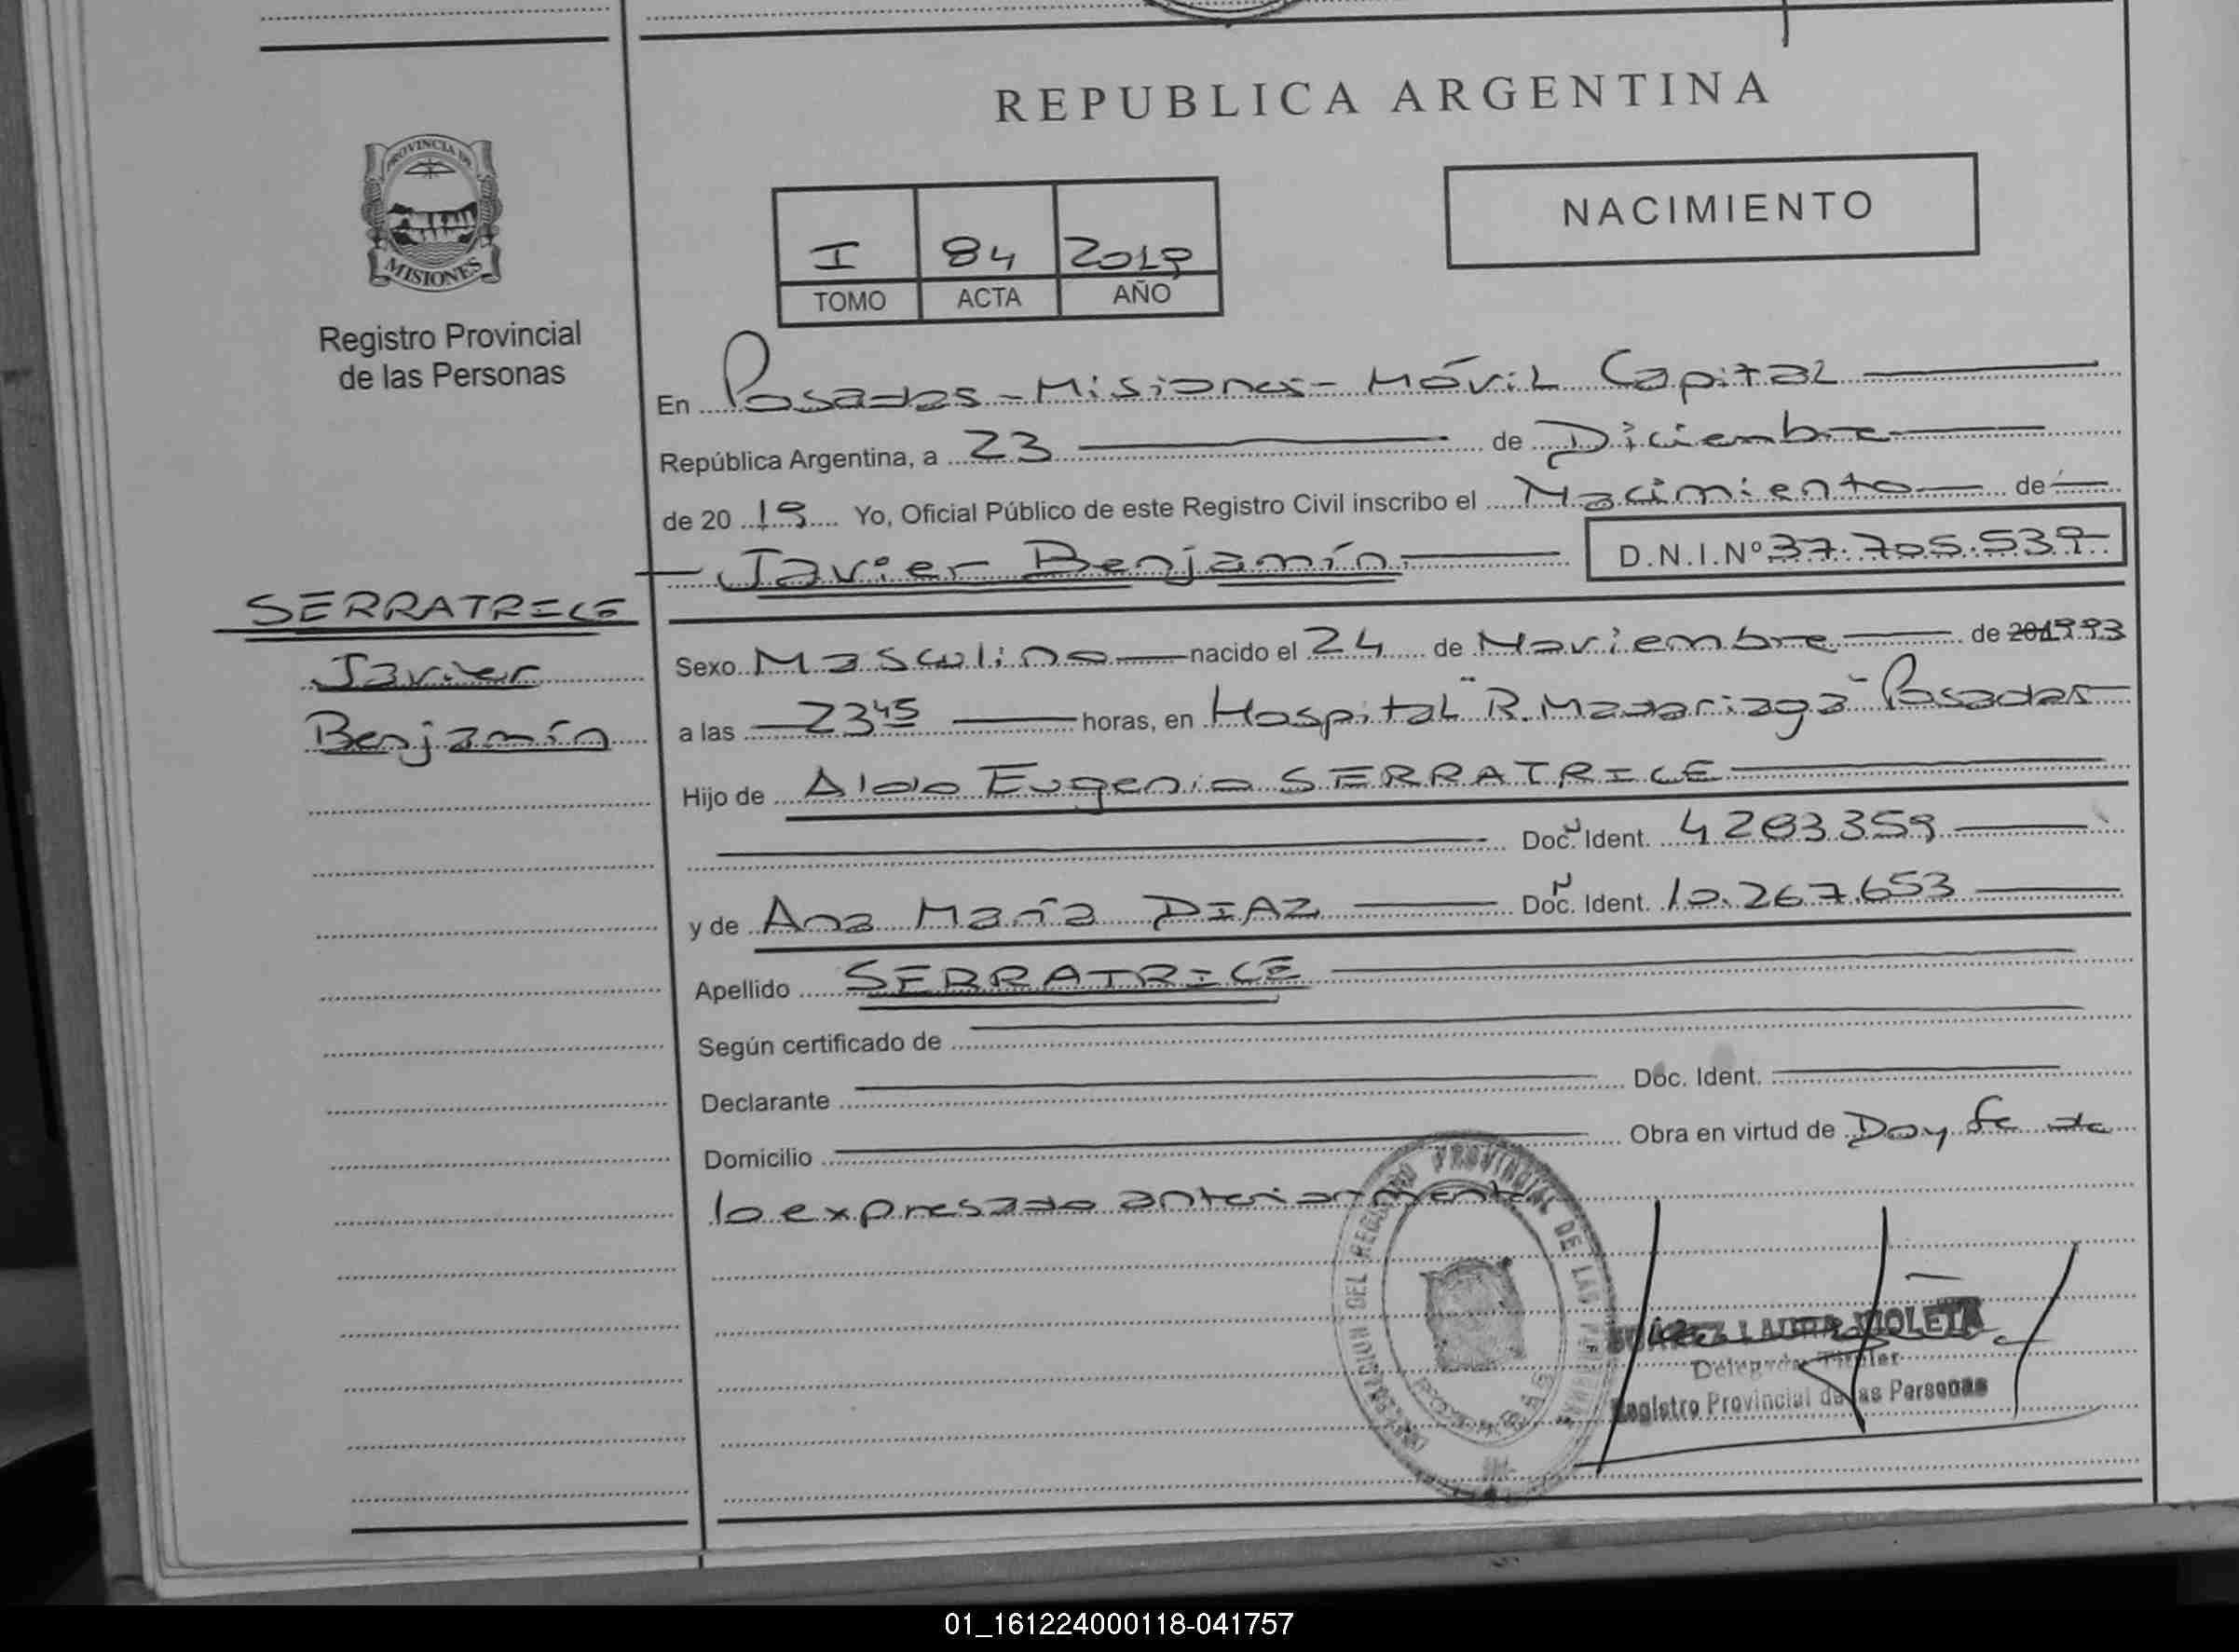 REPUBLICA ARGENTINA
PROVINCIA DE
MISIONES
Registro Provincial
de las Personas
NACIMIENTO
I 84 2019
TOMO ACTA AÑO
En Posadas - Misiones - Móvil Capital
República Argentina, a 23 de Diciembre
de 2019 Yo, Oficial Público de este Registro Civil inscribo el Nacimiento de
Javier Benjamín D.N.I.Nº 37.705.539
SERRATRICE
Javier
Benjamín
Sexo Masculino nacido el 24 de Noviembre de 1993
a las 23 45 horas, en Hospital "R. Madariaga" Posadas
Hijo de Aldo Eugenio SERRATRICE
Doc. Ident. 4203359
y de Ana María DIAZ Doc. Ident. 10.267.653
Apellido SERRATRICE
Según certificado de
Declarante Doc. Ident.
Domicilio Obra en virtud de Doy fe de
lo expresado anteriormente
PROVINCIAL DE LAS
SUÁREZ LAURA VIOLETA
Delegada Titular
Registro Provincial de las Personas
01_161224000118-041757